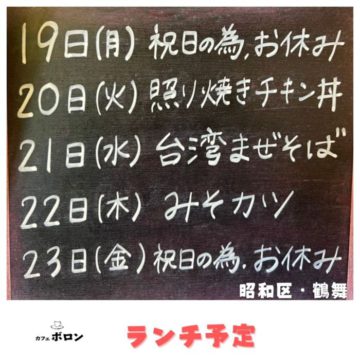 19日(月) 祝日の為,お休み
20日(火) 照り焼きチキン丼
21日(水) 台湾まぜそば
22日(木) みそカツ
23日(金) 祝日の為,お休み
昭和区・鶴舞
カフェ ポロン
ランチ予定